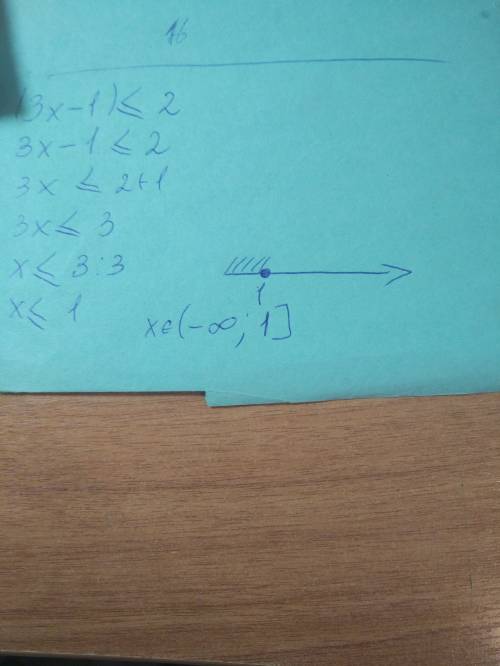 16
(3x-1)≤ 2
3x-1 ≤ 2
3x ≤ 2+1
3x ≤ 3
x ≤ 3:3
x ≤ 1
1
x∈(-∞; 1]